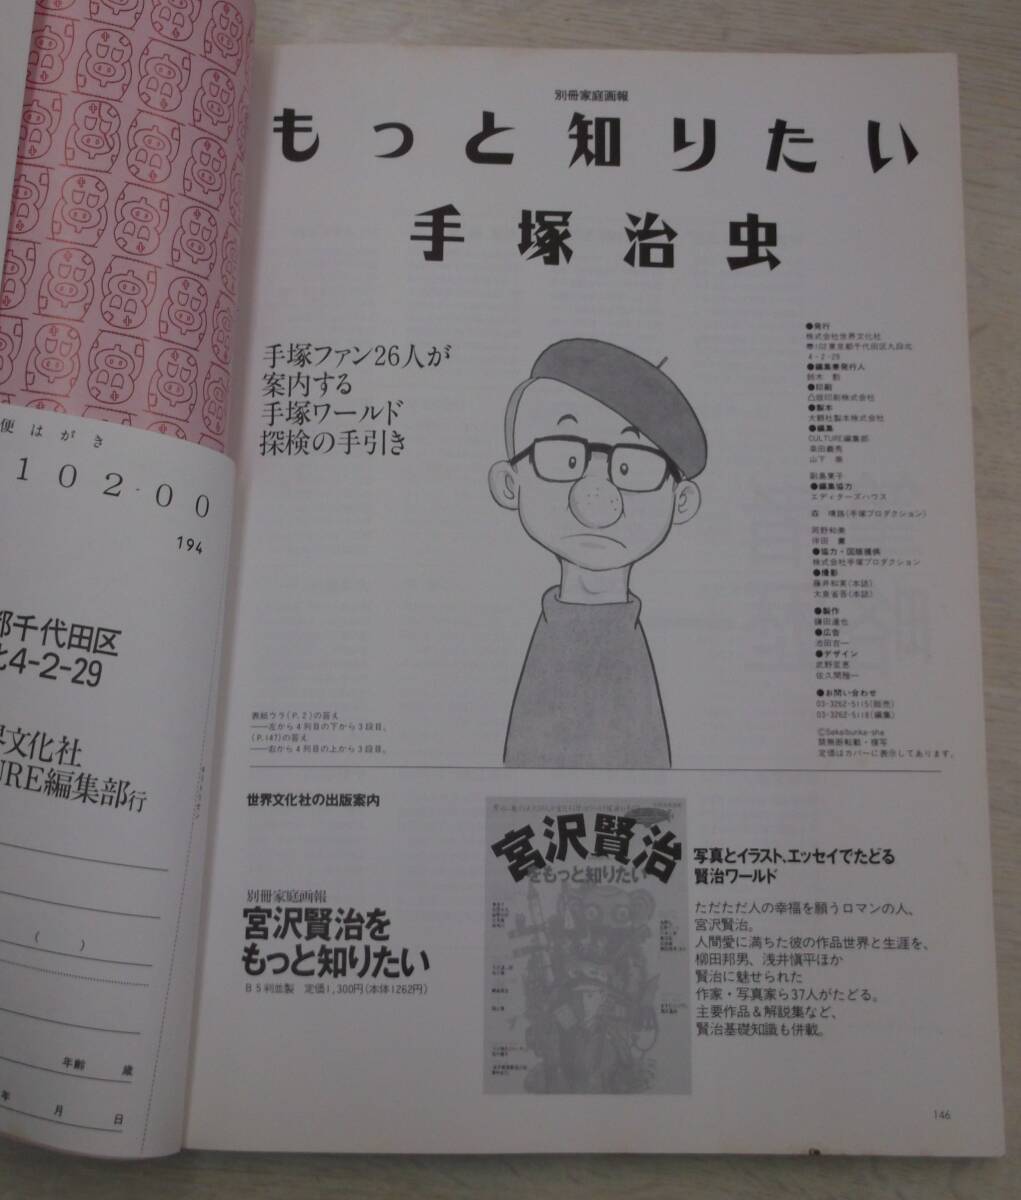 便はがき
102-00
194
都千代田区
北4-2-29
界文化社
URE編集部行
(　　)
年齢　歳
年　月　日
別冊家庭画報
もっと知りたい
手塚治虫
手塚ファン26人が
案内する
手塚ワールド
探検の手引き
●発行
株式会社世界文化社
〠102東京都千代田区九段北
4-2-29
●編集兼発行人
鈴木 勤
●印刷
凸版印刷株式会社
●製本
大観社製本株式会社
●編集
CULTURE編集部
山下
副島
●編集協力
エディターズハウス
森 晴路(手塚プロダクション)
岡野和美
伴田 薫
●協力・図版提供
株式会社手塚プロダクション
●撮影
藤井和実(本誌)
大泉省吾(本誌)
●製作
鎌田達也
●広告
池田吉一
●デザイン
武野亜恵
佐久間隆一
●お問い合わせ
03-3262-5115(販売)
03-3262-5118(編集)
©Sekaibunka-sha
禁無断転載・複写
定価はカバーに表示してあります。
表紙ウラ(P.2)の答え
──左から4列目の下から3段目。
(P.147)の答え
──右から4列目の上から3段目。
世界文化社の出版案内
別冊家庭画報
宮沢賢治を
もっと知りたい
B5判並製　定価1,300円(本体1262円)
宮沢賢治
をもっと知りたい
写真とイラスト、エッセイでたどる
賢治ワールド
ただただ人の幸福を願うロマンの人、
宮沢賢治。
人間愛に満ちた彼の作品世界と生涯を、
柳田邦男、浅井愼平ほか
賢治に魅せられた
作家・写真家ら37人がたどる。
主要作品＆解説集など、
賢治基礎知識も併載。
146